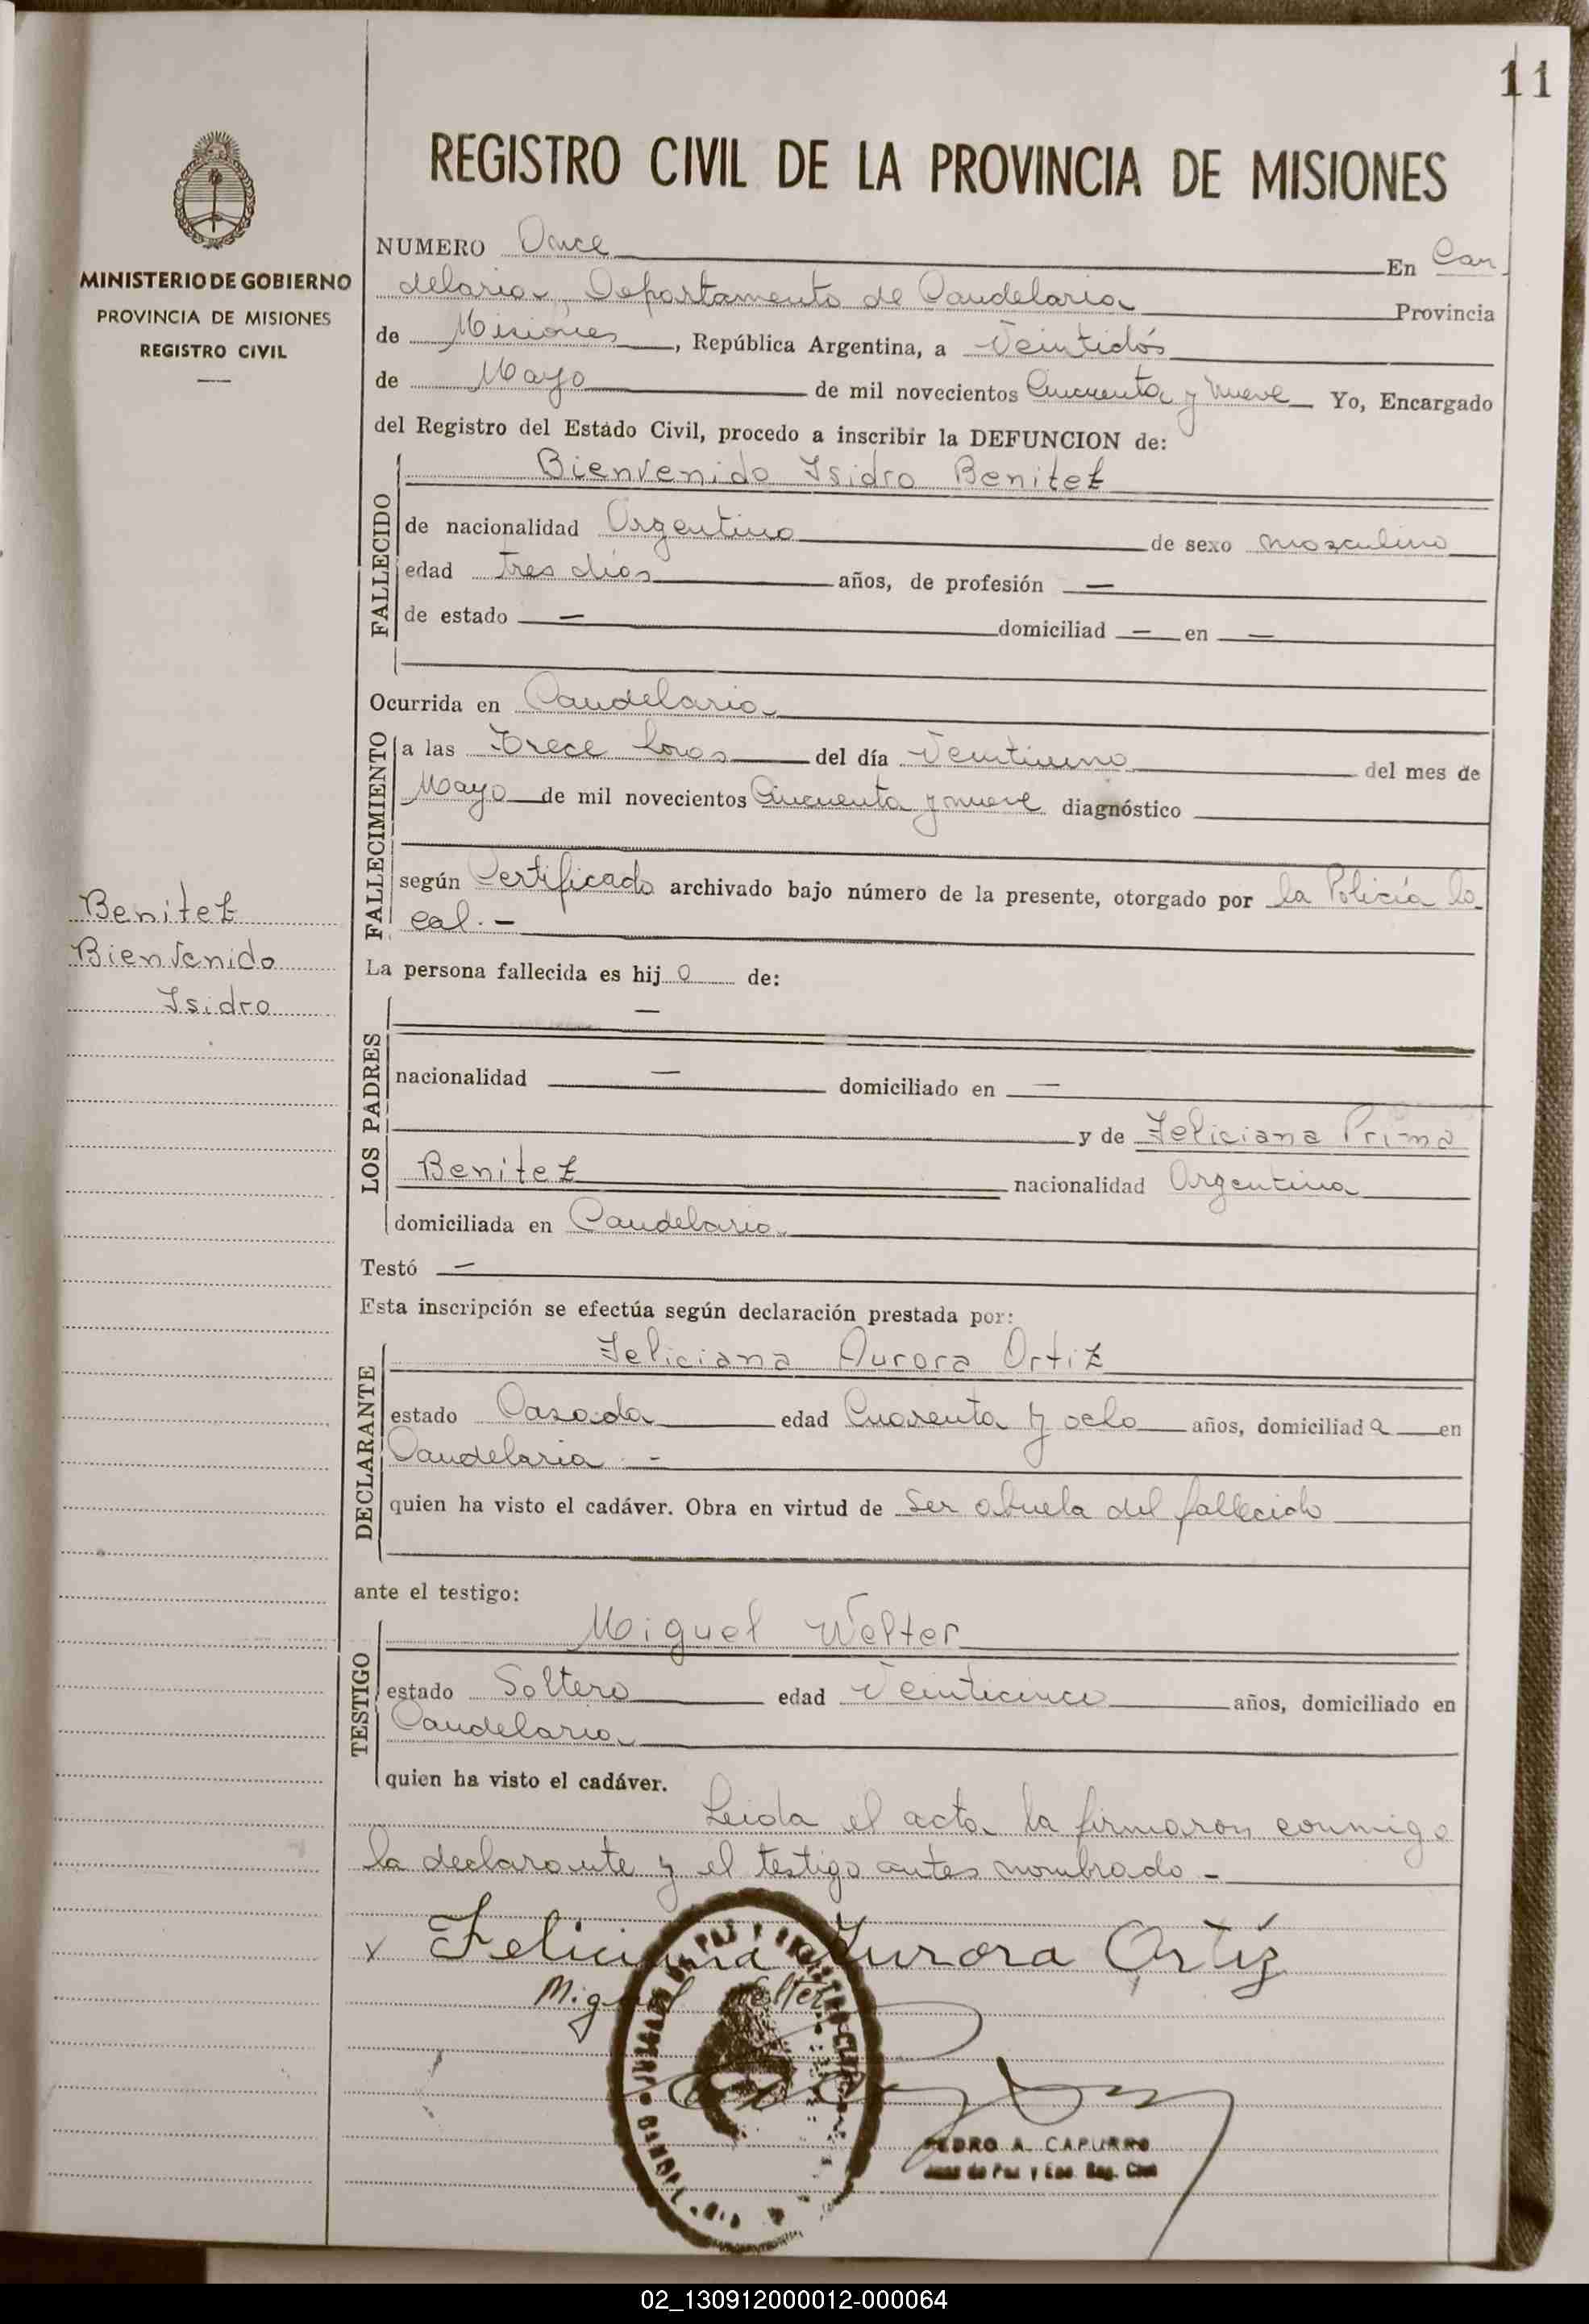 11
REGISTRO CIVIL DE LA PROVINCIA DE MISIONES
MINISTERIO DE GOBIERNO
PROVINCIA DE MISIONES
REGISTRO CIVIL
NUMERO Once En Can
delaria, Departamento de Candelaria Provincia
de Misiones, República Argentina, a Veintidós
de Mayo de mil novecientos Cincuenta y nueve Yo, Encargado
del Registro del Estado Civil, procedo a inscribir la DEFUNCION de:
FALLECIDO
Bienvenido Isidro Benitez
de nacionalidad Argentino de sexo masculino
edad tres días años, de profesión —
de estado — domiciliad — en —
Ocurrida en Candelaria
FALLECIMIENTO
a las Trece horas del día Veintiuno del mes de
Mayo de mil novecientos Cincuenta y nueve diagnóstico
según Certificado archivado bajo número de la presente, otorgado por la Policía lo
cal. —
Benitez
Bienvenido
Isidro
La persona fallecida es hijo de:
LOS PADRES
—
nacionalidad — domiciliado en —
y de Feliciana Prima
Benitez nacionalidad Argentina
domiciliada en Candelaria
Testó —
Esta inscripción se efectúa según declaración prestada por:
DECLARANTE
Feliciana Aurora Ortiz
estado Casada edad Cuarenta y ocho años, domiciliada en
Candelaria —
quien ha visto el cadáver. Obra en virtud de Ser abuela del fallecido
ante el testigo:
TESTIGO
Miguel Welter
estado Soltero edad Veinticinco años, domiciliado en
Candelaria
quien ha visto el cadáver.
Leida el acta la firmaron conmigo
la declarante y el testigo antes nombrado —
x Feliciana Aurora Ortiz
Miguel Welter
PEDRO A. CAPURRO
Juez de Paz y Enc. Reg. Civil
02_130912000012-000064